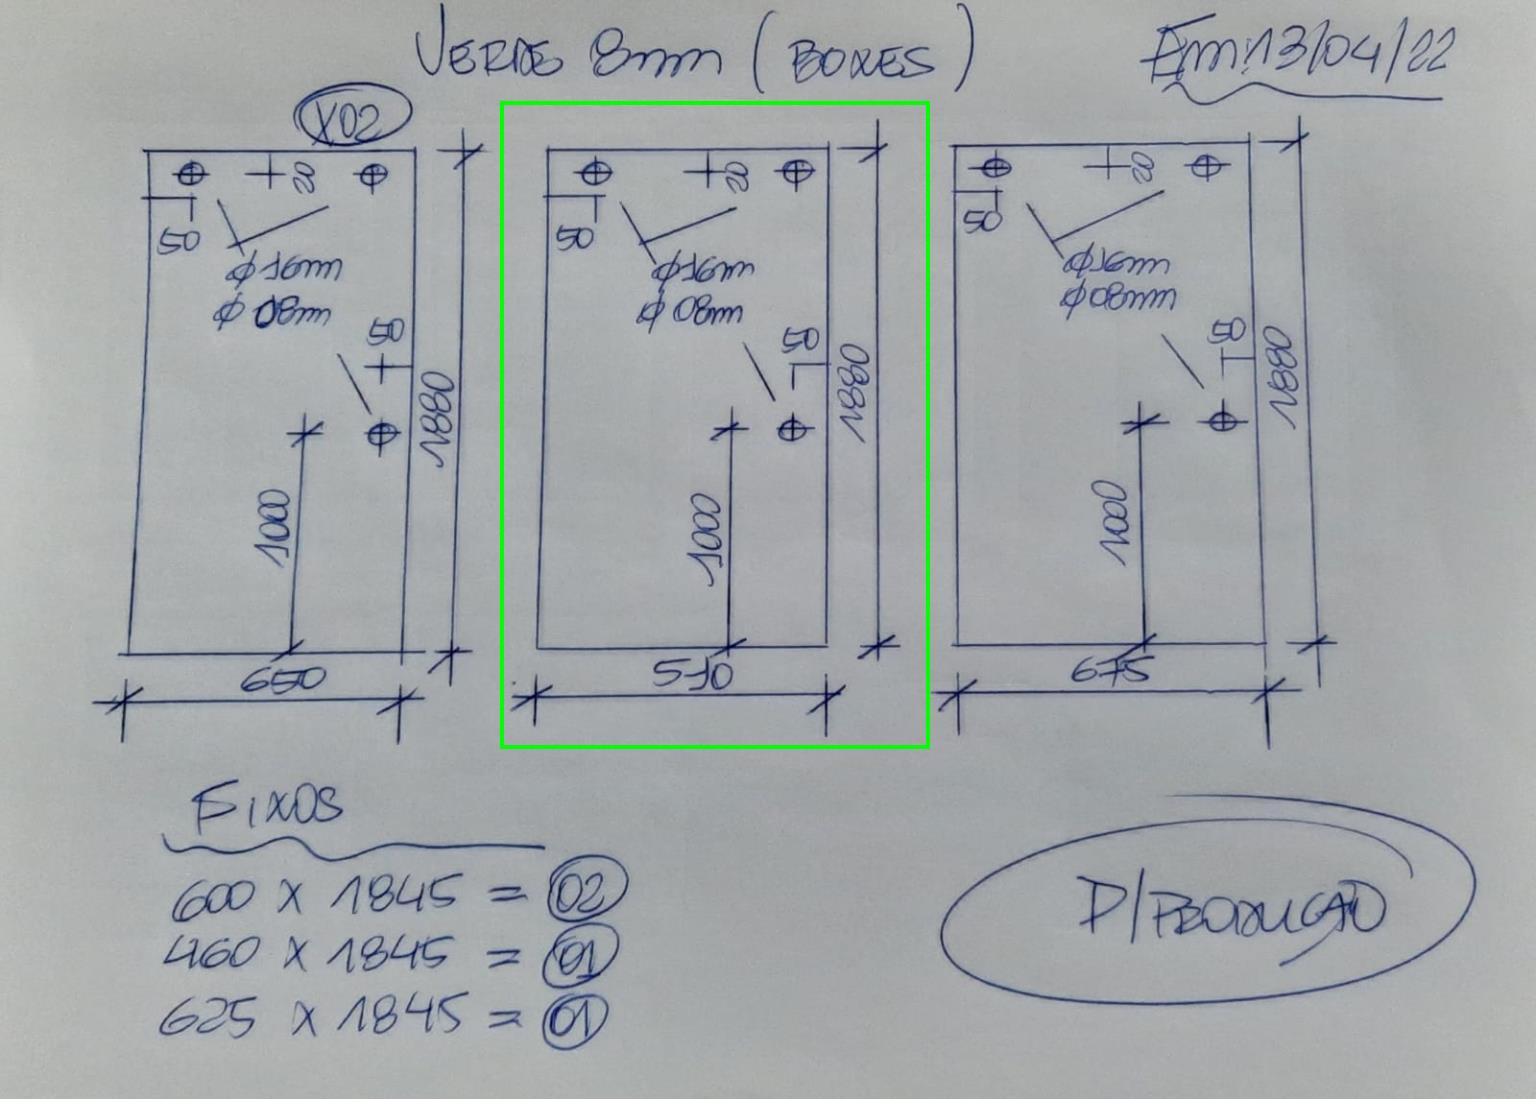 VERDE 8mm (BOXES)
Em: 13/04/22
X02
20
50
φ16mm
φ08mm
50
1880
1000
650
20
50
φ16mm
φ08mm
50
1880
1000
510
20
50
φ16mm
φ08mm
50
1880
1000
675
FIXOS
600 X 1845 = 02
460 X 1845 = 01
625 X 1845 = 01
P/PRODUÇÃO